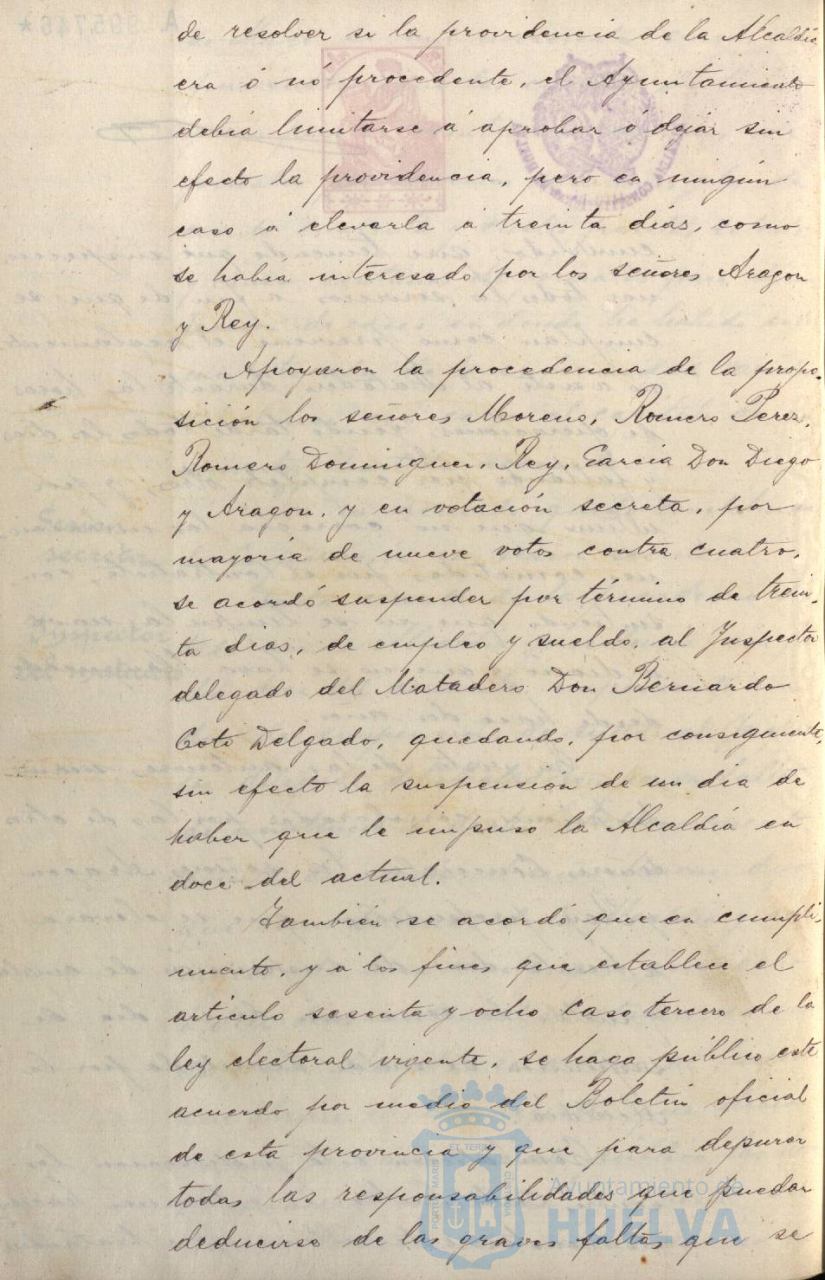 de resolver si la providencia de la Alcaldía
era ó nó procedente, el Ayuntamiento
debía limitarse á aprobar ó dejar sin
efecto la providencia, pero en ningún
caso á elevarla á treinta días, como
se había interesado por los señores Aragon
y Rey.
Apoyaron la procedencia de la propo-
sición los señores Moreno, Romero Perez,
Romero Dominguez, Rey, Garcia Don Diego
y Aragon, y en votación secreta, por
mayoría de nueve votos contra cuatro,
se acordó suspender por término de trein-
ta dias, de empleo y sueldo, al Inspector
delegado del Matadero Don Bernardo
Coto Delgado, quedando, por consiguiente,
sin efecto la suspensión de un dia de
haber que le impuso la Alcaldía en
doce del actual.
También se acordó que en cumpli-
miento, y á los fines que establece el
artículo sesenta y ocho caso tercero de la
ley electoral vigente, se haga público este
acuerdo por medio del Boletín oficial
de esta provincia y que para depurar
todas las responsabilidades que puedan
deducirse de las graves faltas que se
Ayuntamiento de
HUELVA